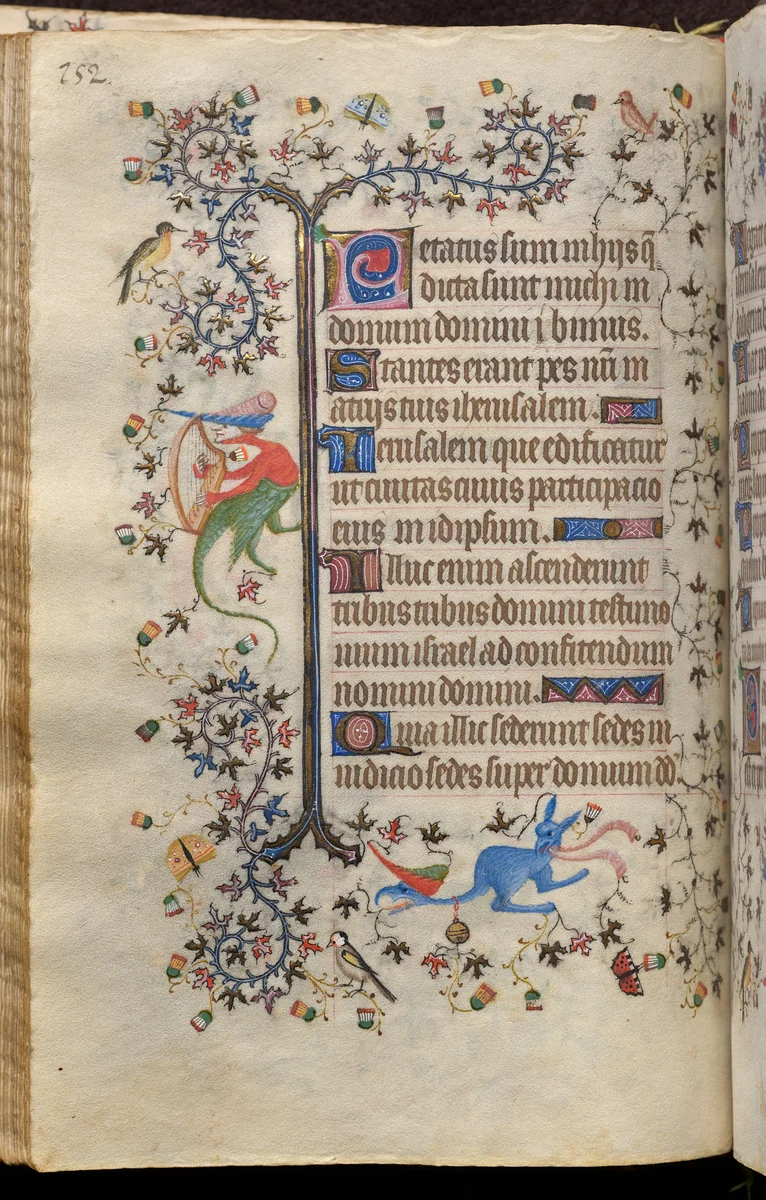 152.
Letatus sum in hijs q̄
dicta sunt michi in
domum domini ibimus.
Stantes erant pes nr̄i in
atrijs tuis iherusalem.
Jerusalem que edificatur
ut ciuitas cuius participacio
eius in idipsum.
Illuc enim ascenderunt
tribus tribus domini testimo
nium israel ad confitendum
nomini domini.
Quia illic sederunt sedes in
iudicio sedes super domum dd̄.